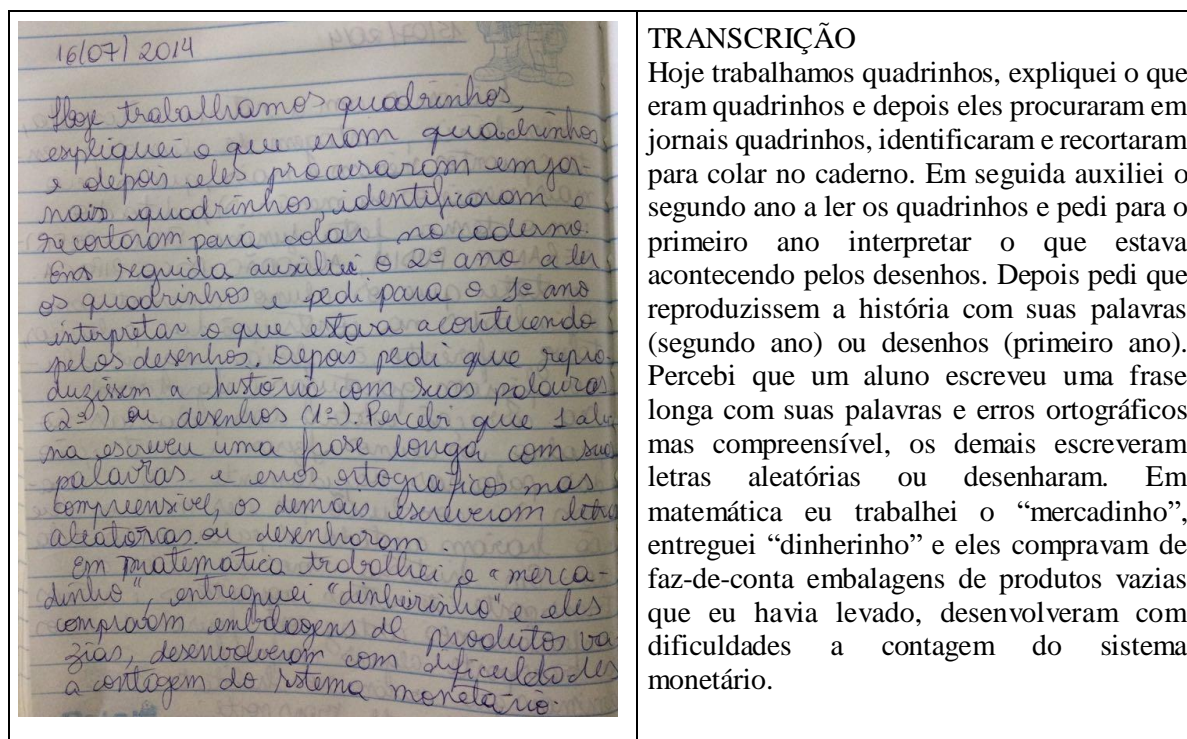 16/07/2014
Hoje trabalhamos quadrinhos,
expliquei o que eram quadrinhos
e depois eles procuraram em jor-
nais quadrinhos, identificaram e
recortaram para colar no caderno.
Em seguida auxiliei o 2º ano a ler
os quadrinhos e pedi para o 1º ano
interpretar o que estava acontecendo
pelos desenhos. Depois pedi que repro-
duzissem a história com suas palavras
(2º) ou desenhos (1º). Percebi que 1 alu
no escreveu uma frase longa com suas
palavras e erros ortográficos mas
compreensível, os demais escreveram letras
aleatórias ou desenharam.
Em matemática trabalhei o "merca-
dinho", entreguei "dinheirinho" e eles
compravam embalagens de produtos va
zias, desenvolveram com dificuldades
a contagem do sistema monetário.
TRANSCRIÇÃO
Hoje trabalhamos quadrinhos, expliquei o que
eram quadrinhos e depois eles procuraram em
jornais quadrinhos, identificaram e recortaram
para colar no caderno. Em seguida auxiliei o
segundo ano a ler os quadrinhos e pedi para o
primeiro ano interpretar o que estava
acontecendo pelos desenhos. Depois pedi que
reproduzissem a história com suas palavras
(segundo ano) ou desenhos (primeiro ano).
Percebi que um aluno escreveu uma frase
longa com suas palavras e erros ortográficos
mas compreensível, os demais escreveram
letras aleatórias ou desenharam. Em
matemática eu trabalhei o “mercadinho”,
entreguei “dinherinho” e eles compravam de
faz-de-conta embalagens de produtos vazias
que eu havia levado, desenvolveram com
dificuldades a contagem do sistema
monetário.